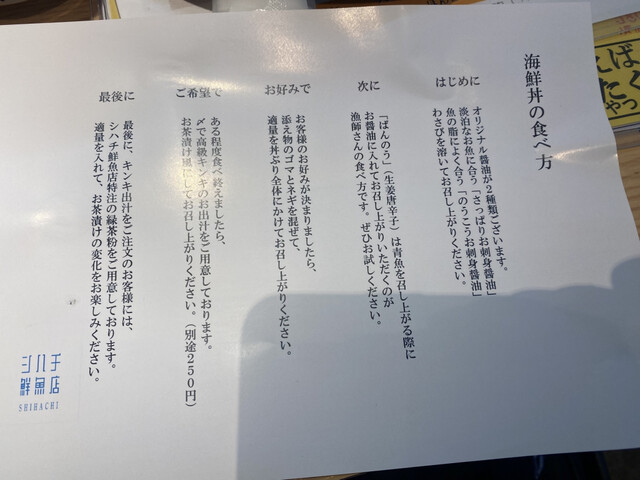 海鮮丼の食べ方
はじめに
オリジナル醤油が2種類ございます。
淡泊なお魚に合う「さっぱりお刺身醤油」
魚の脂によく合う「のうこうお刺身醤油」
わさびを溶いてお召し上がりください。
次に
「ばんのう」(生姜唐辛子)は青魚を召し上がる際に
お醤油に入れてお召し上がりいただくのが
漁師さんの食べ方です。ぜひお試しください。
お好みで
お客様のお好みが決まりましたら、
添え物のゴマとネギを混ぜて、
適量を丼ぶり全体にかけてお召し上がりください。
ご希望で
ある程度食べ終えましたら、
〆で高級キンキのお出汁をご用意しております。
お茶漬け風にしてお召し上がりください。(別途250円)
最後に
最後に、キンキ出汁をご注文のお客様には、
シハチ鮮魚店特注の緑茶粉をご用意しております。
適量を入れて、お茶漬けの変化をお楽しみください。
シハチ
鮮魚店
SHIHACHI